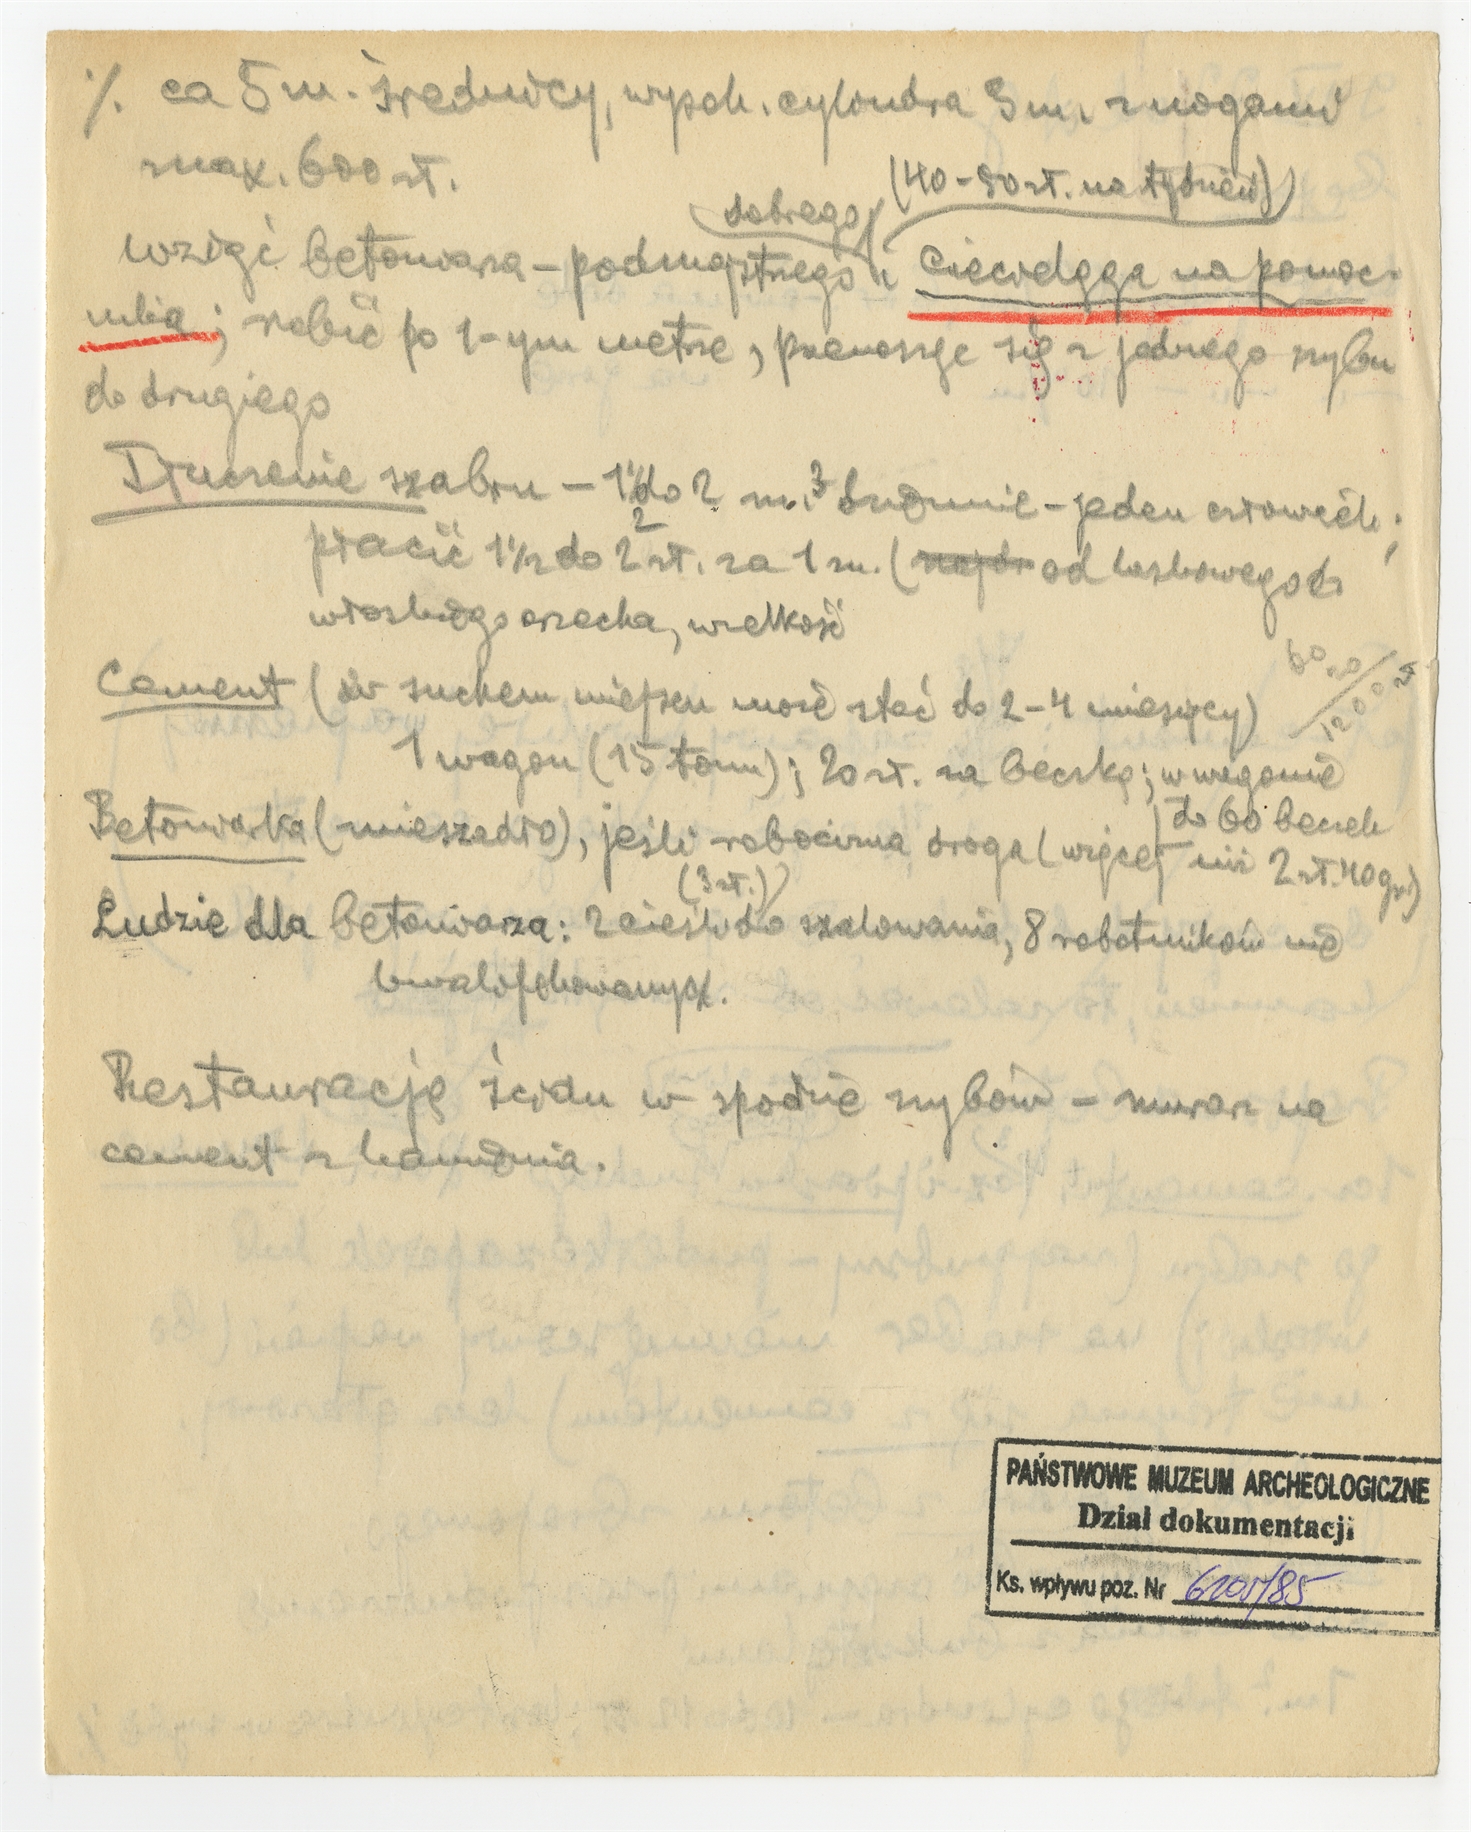 ·/. ca 5 m. średnicy, wysok. cylindra 3 m. z nogami
max. 600 zł.
(40-50 zł. na tydzień)
dobrego
Wziąć betoniarza – podmajstrzego i cieślę na pomoc-
nika; robić po 1-ym metrze, przenosząc się z jednego szybu
do drugiego
Tłuczenie szabru – 1½ do 2 m.³ dziennie – jeden człowiek;
płacić 1½ do 2 zł. za 1 m. (od laskowego do
włoskiego orzecha, wielkość
Cement (w suchem miejscu może stać do 2-4 miesięcy)
1200 zł
1 wagon (15 tonn); 20 zł. za beczkę; w wagonie
do 60 beczek
Betoniarka (mieszadło), jeśli robocizna droga (więcej niż 2 zł. 40 gr.)
(3 zł.)
Ludzie dla betoniarza: 2 cieśli do szalowania, 8 robotników nie
kwalifikowanych.
Restaurację ścian w spodzie szybów – murarz na
cement z kamienia.
PAŃSTWOWE MUZEUM ARCHEOLOGICZNE
Dział dokumentacji
Ks. wpływu poz. Nr 6205/85